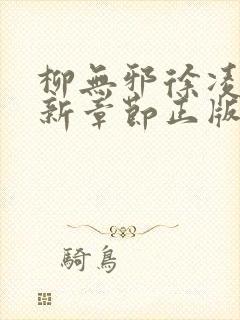 柳無邪徐凌
新章節正版
騎鳥